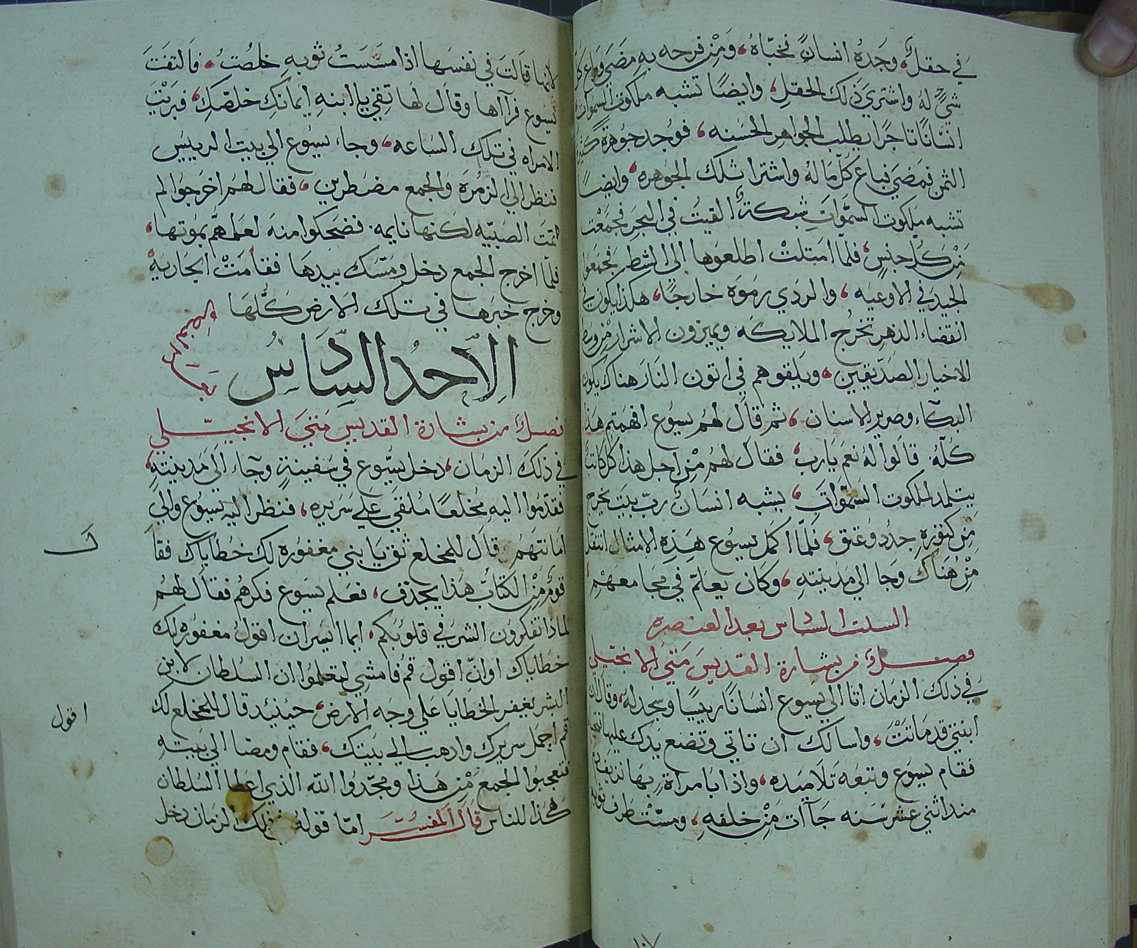 في حقل، وجده انسان نخباه، ومن فرحه به مضى وباع كل
شي له واشترى ذلك الحقل، وايضا تشبه ملكوت السموات
انسانا تاجرا يطلب الجواهر الحسنه، فوجد جوهرة كثيرة
الثمن فمضى فباع كل ماله واشترا تلك الجوهره، وايضا
تشبه ملكوت السموات شبكة القيت في البحر فجمعت
من كل جنس، فلما امتلت اطلعوها الى الشط فجمعوا
الجيد في الاوعيه، والردي رموه خارجا، هكذا يكون في
انقضاء الدهر تخرج الملايكه ويميزون الاشرار من وسط
الاخيار الصديقين، ويلقوهم في اتون النار هناك يكون
البكاء وصرير الاسنان، ثم قال لهم يسوع افهمتم هذا
كله، قالوا له نعم يارب، فقال لهم من اجل هذا كل كاتب
يتلمد لملكوت السموات، يشبه انسان رب بيت يخرج
من كنوزه جدد وعتق، فلما اكمل يسوع هذه الامثال انتقل
من هناك وجا الى مدينته، وكان يعلم في مجامعهم
السبت السادس بعد العنصره
فصل من بشارة القديس متى الانجيلي
في ذلك الزمان اتا الى يسوع انسانا رييسا وسجد له، وقال ان
ابنتي قد ماتت، واسالك ان تاتي وتضع يدك عليها فتحيا
فقام يسوع وتبعه تلاميده، واذا بامراة بها نزيف
مند اثني عشر سنه جاات من خلفه، ومسّت طرف ثوبه
١٠٧
لانها قالت في نفسها اذا مسست ثوبه خلصت، فالتفت
يسوع فرآها وقال لها تقي يا ابنه ايمانك خلصك، فبريت
الامراه في تلك الساعه، وجاء يسوع الى بيت الرييس
فنظر الى الزمره والجمع مضطربين، فقال لهم اخرجوا لم
تمت الصبيه لكنها نايمه، فضحكوا منه لعلمهم بموتها،
فلما اخرج الجمع دخل ومسك بيدها فقامت الجاريه
وخرج خبرها في تلك الارض كلها
بعد العنصره
الاحد السادس
فصل من بشارة القديس متى الانجيلي
في ذلك الزمان، دخل يسوع في سفينة وجاء الى مدينته،
فقدموا اليه مخلعا ملقى على سريره، فنظر اليه يسوع والى
امانتهم قال للمخلع ثق يا بني مغفوره لك خطاياك فقا
ل
قوم من الكتاب هذا يجدف، فعلم يسوع فكرهم فقال لهم
لماذا تفكرون الشر في قلوبكم، ايما ايسر ان اقول مغفوره لك
خطاياك او ان اقول قم فامشي لتعلموا ان السلطان لابن
البشر يغفر الخطايا على وجه الارض، حينيد قال للمخلع لك
اقول
قم احمل سريرك وادهب الى بيتك، فقام ومضا الى بيته
فتعجبوا الجمع من هذا ومجدوا الله الذي اعطا السلطان
هكذا للناس قال المفسر اما قوله في ذلك الزمان دخل